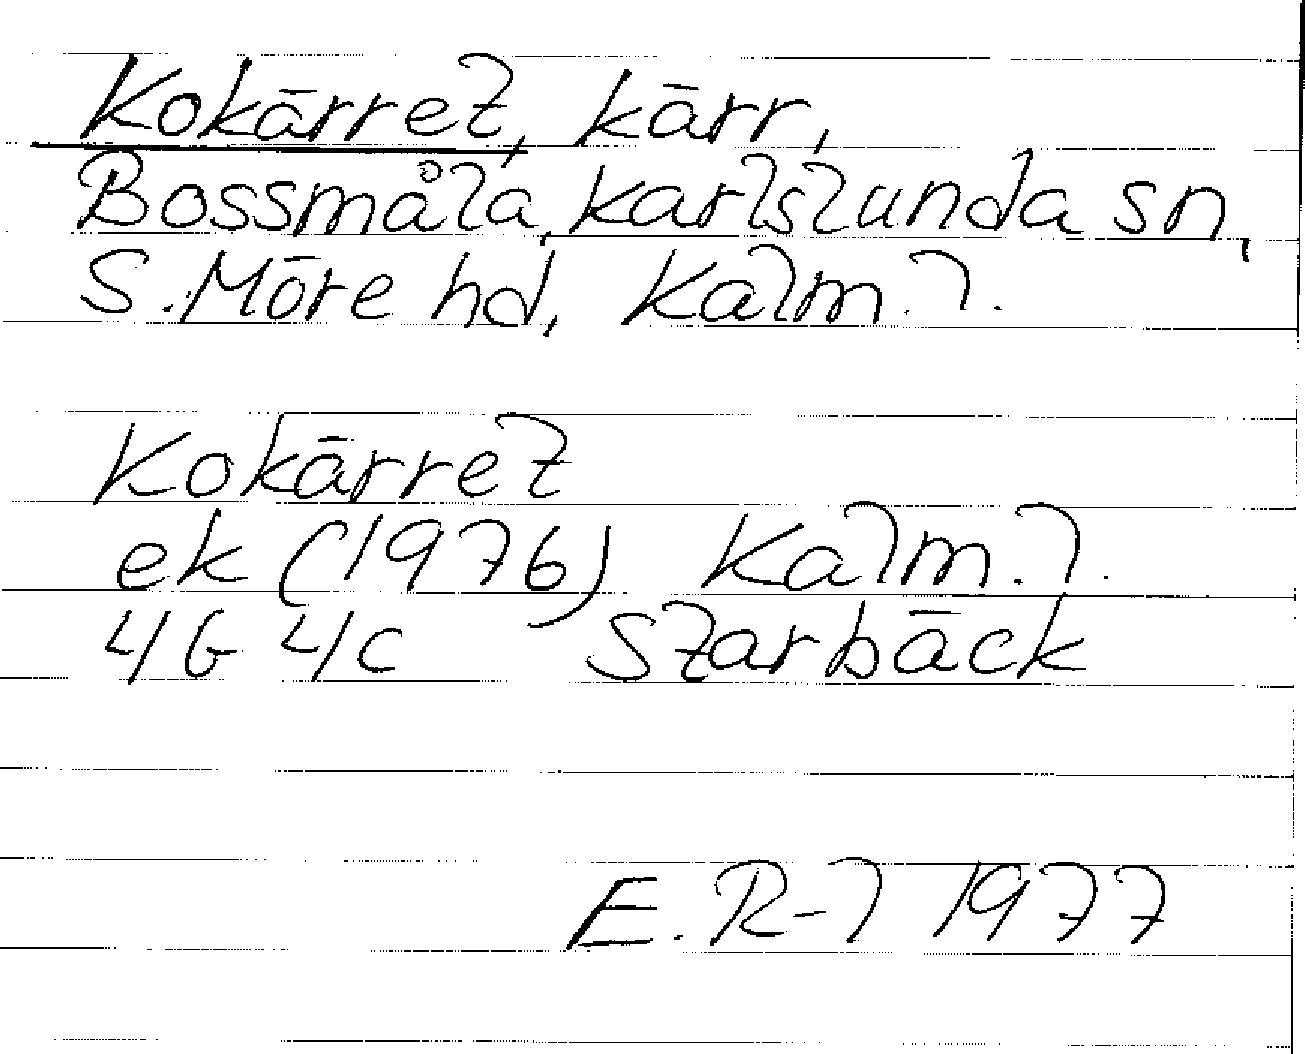 Kokärret, kärr,
Bossmåla, Karlslunda sn,
S. Möre hd, Kalm. l.
Kokärret
ek (1976) Kalm. l.
4G 4c Starbäck
E. R-l 1977